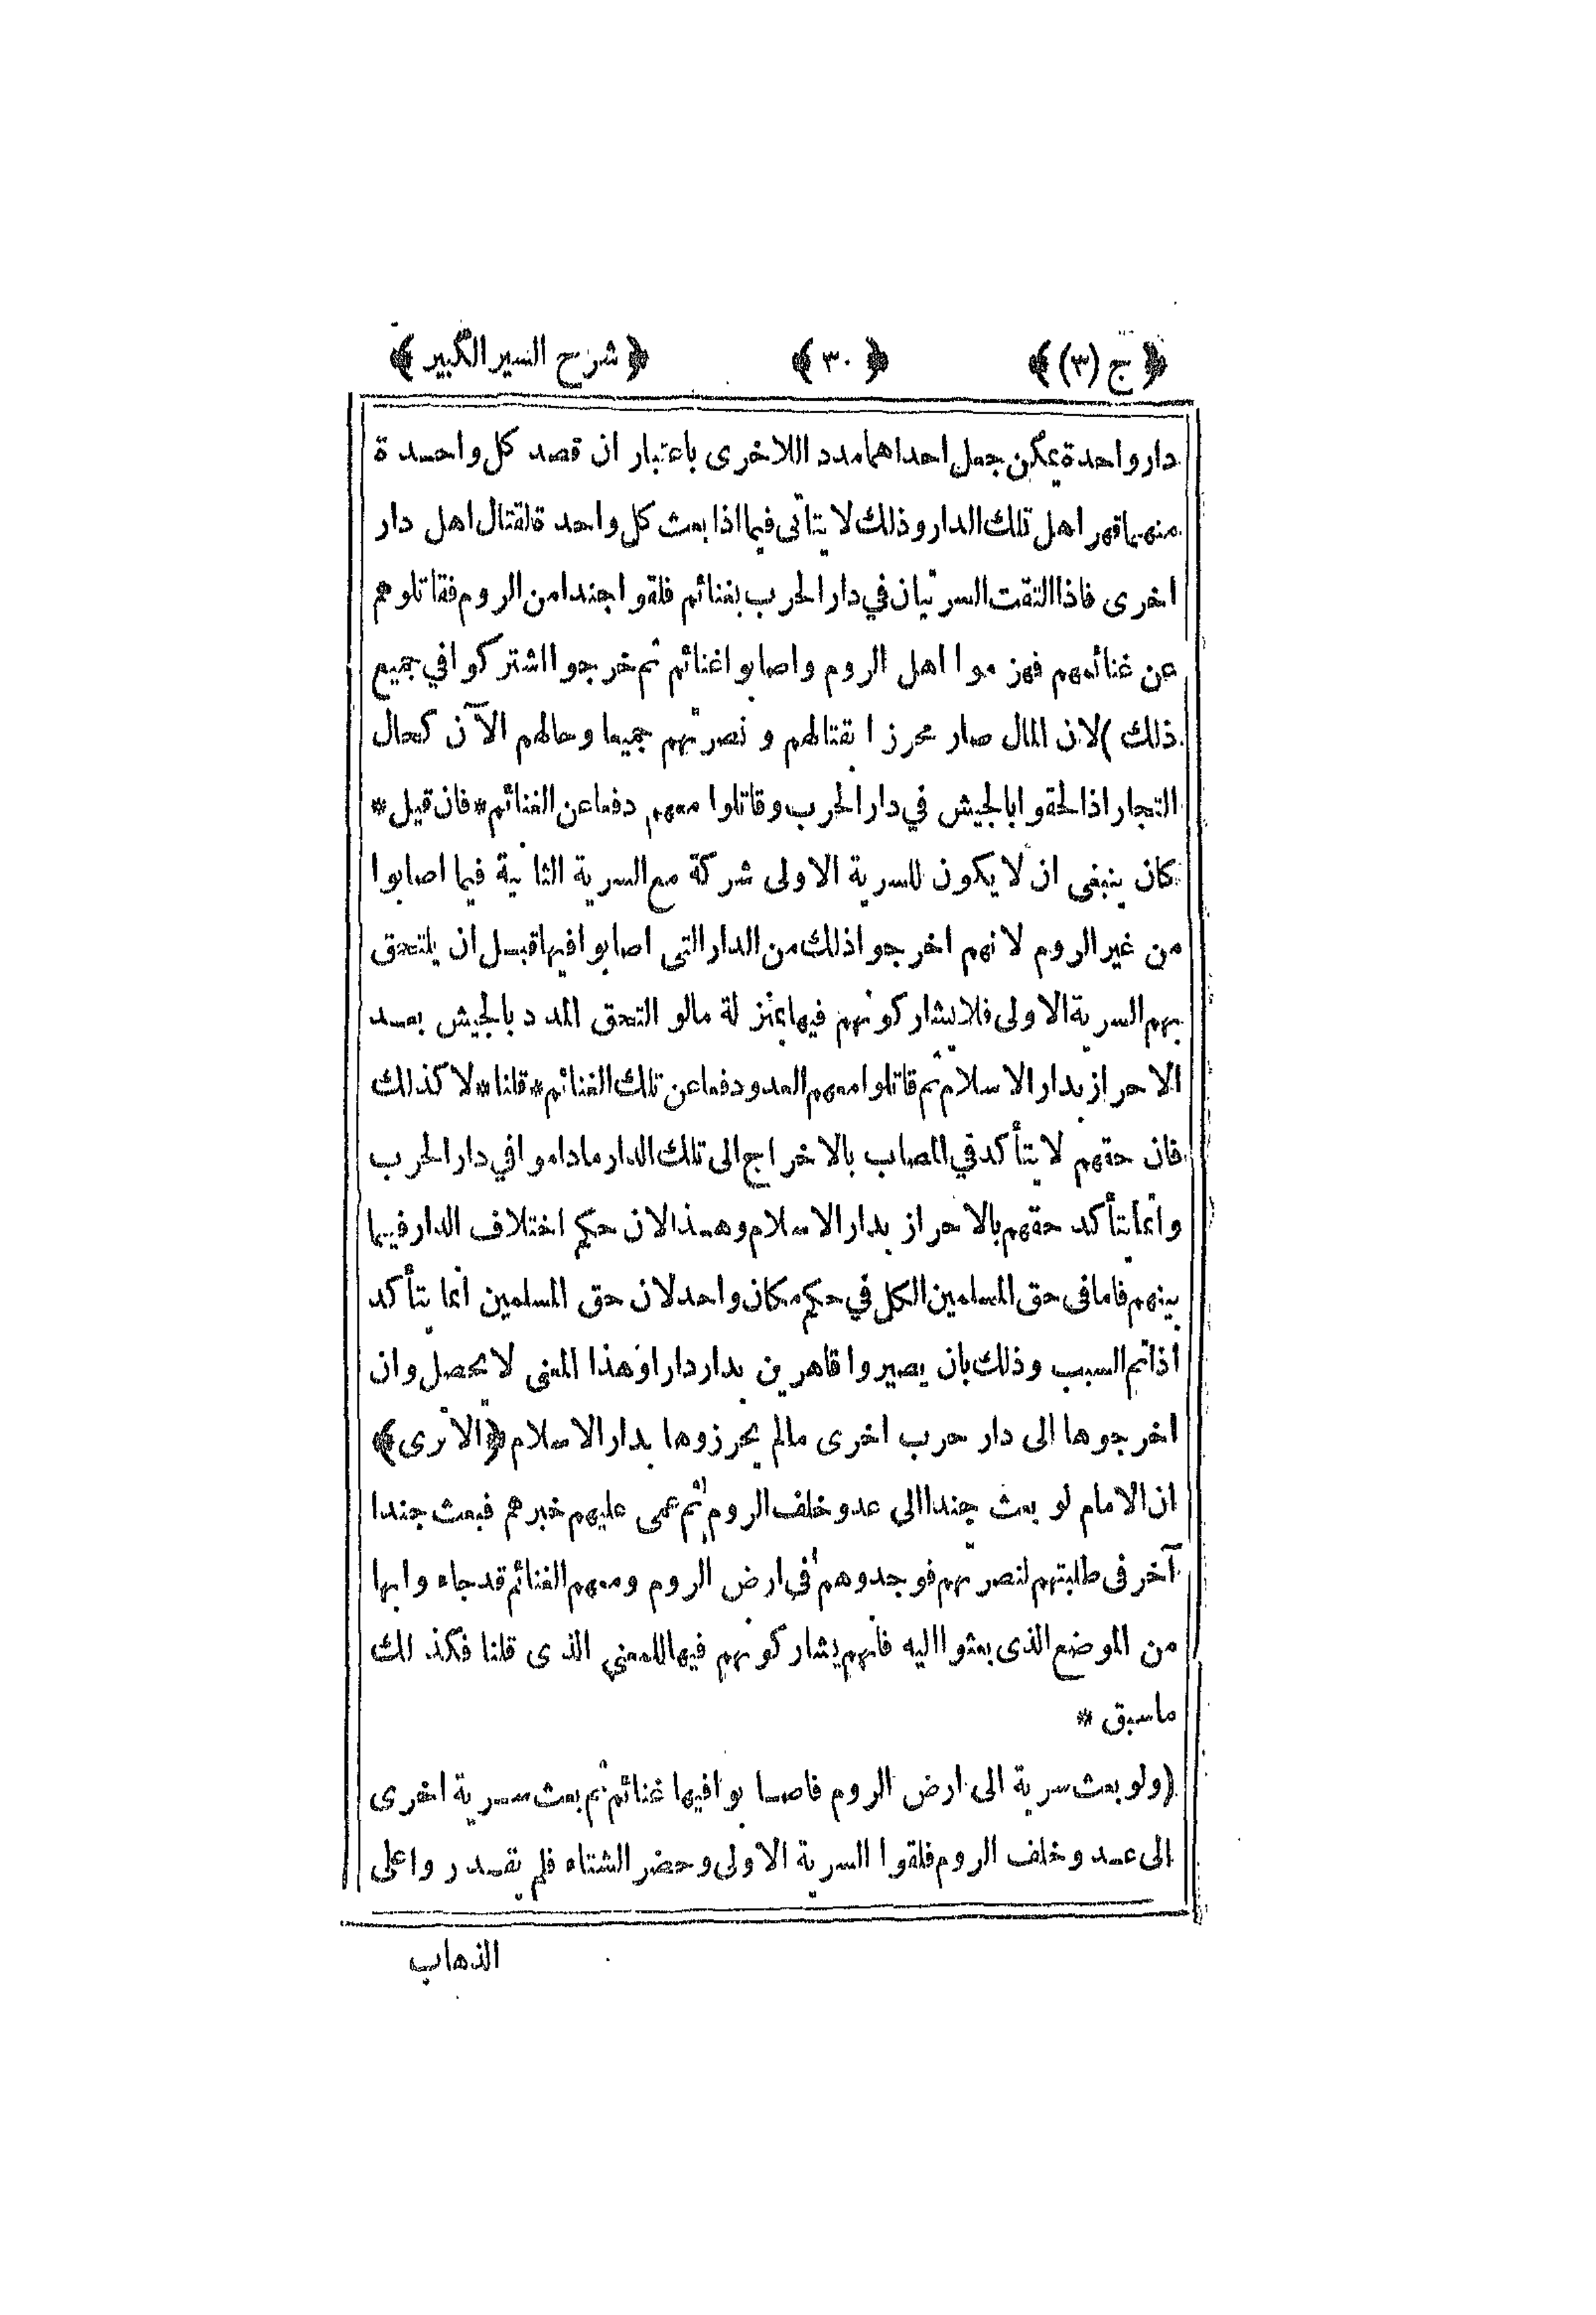 ﴿ ج (٣) ﴾ ﴿ ٣٠ ﴾ ﴿ شرح السير الكبير ﴾
دار واحدة يمكن جعل احداهما مدد اللاخرى باعتبار ان قصد كل واحدة
منهما قهر اهل تلك الدار وذلك لا يتأتى فيما اذا بعث كل واحد ة لقتال اهل دار
اخرى فاذا التقت السريتان في دار الحرب بغنائم فلقوا جندا من الروم فقاتلوهم
عن غنائمهم فهزموا اهل الروم واصابوا غنائم ثم خرجوا اشتركوا في جميع
ذلك ) لان المال صار محرزا بقتالهم و نصرتهم جميعا وحالهم الآن كحال
التجار اذا لحقوا بالجيش في دار الحرب وقاتلوا معهم دفعا عن الغنائم * فان قيل *
كان ينبغى ان لا يكون للسرية الاولى شركة مع السرية الثانية فيما اصابوا
من غير الروم لانهم اخرجوا ذلك من الدار التى اصابوا فيها قبل ان يلتحق
بهم السرية الاولى فلا يشاركونهم فيها بمنزلة مالو التحق المدد بالجيش بعد
الاحراز بدار الاسلام ثم قاتلوا معهم العدو دفعا عن تلك الغنائم * قلنا * لا كذلك
فان حقهم لا يتأكد في المصاب بالاخراج الى تلك الدار ما داموا في دار الحرب
وانما يتأكد حقهم بالاحراز بدار الاسلام وهذا لان حكم اختلاف الدار فيما
بينهم فاما فى حق المسلمين الكل في حكم مكان واحد لان حق المسلمين انما يتأكد
اذا تم السبب وذلك بان يصيروا قاهرين بدار دارا وهذا المعنى لا يحصل وان
اخرجوها الى دار حرب اخرى مالم يحرزوها بدار الاسلام ﴿ الا ترى ﴾
ان الامام لو بعث جندا الى عدو خلف الروم ثم عمى عليهم خبرهم فبعث جندا
آخر فى طلبتهم لنصرتهم فوجدوهم في ارض الروم ومعهم الغنائم قد جاءوا بها
من الموضع الذى بعثوا اليه فانهم يشاركونهم فيها للمعنى الذى قلنا فكذلك
ماسبق *
(ولو بعث سرية الى ارض الروم فاصابوا فيها غنائم ثم بعث سرية اخرى
الى عدو خلف الروم فلقوا السرية الاولى وحضر الشتاء فلم يقدروا على
الذهاب